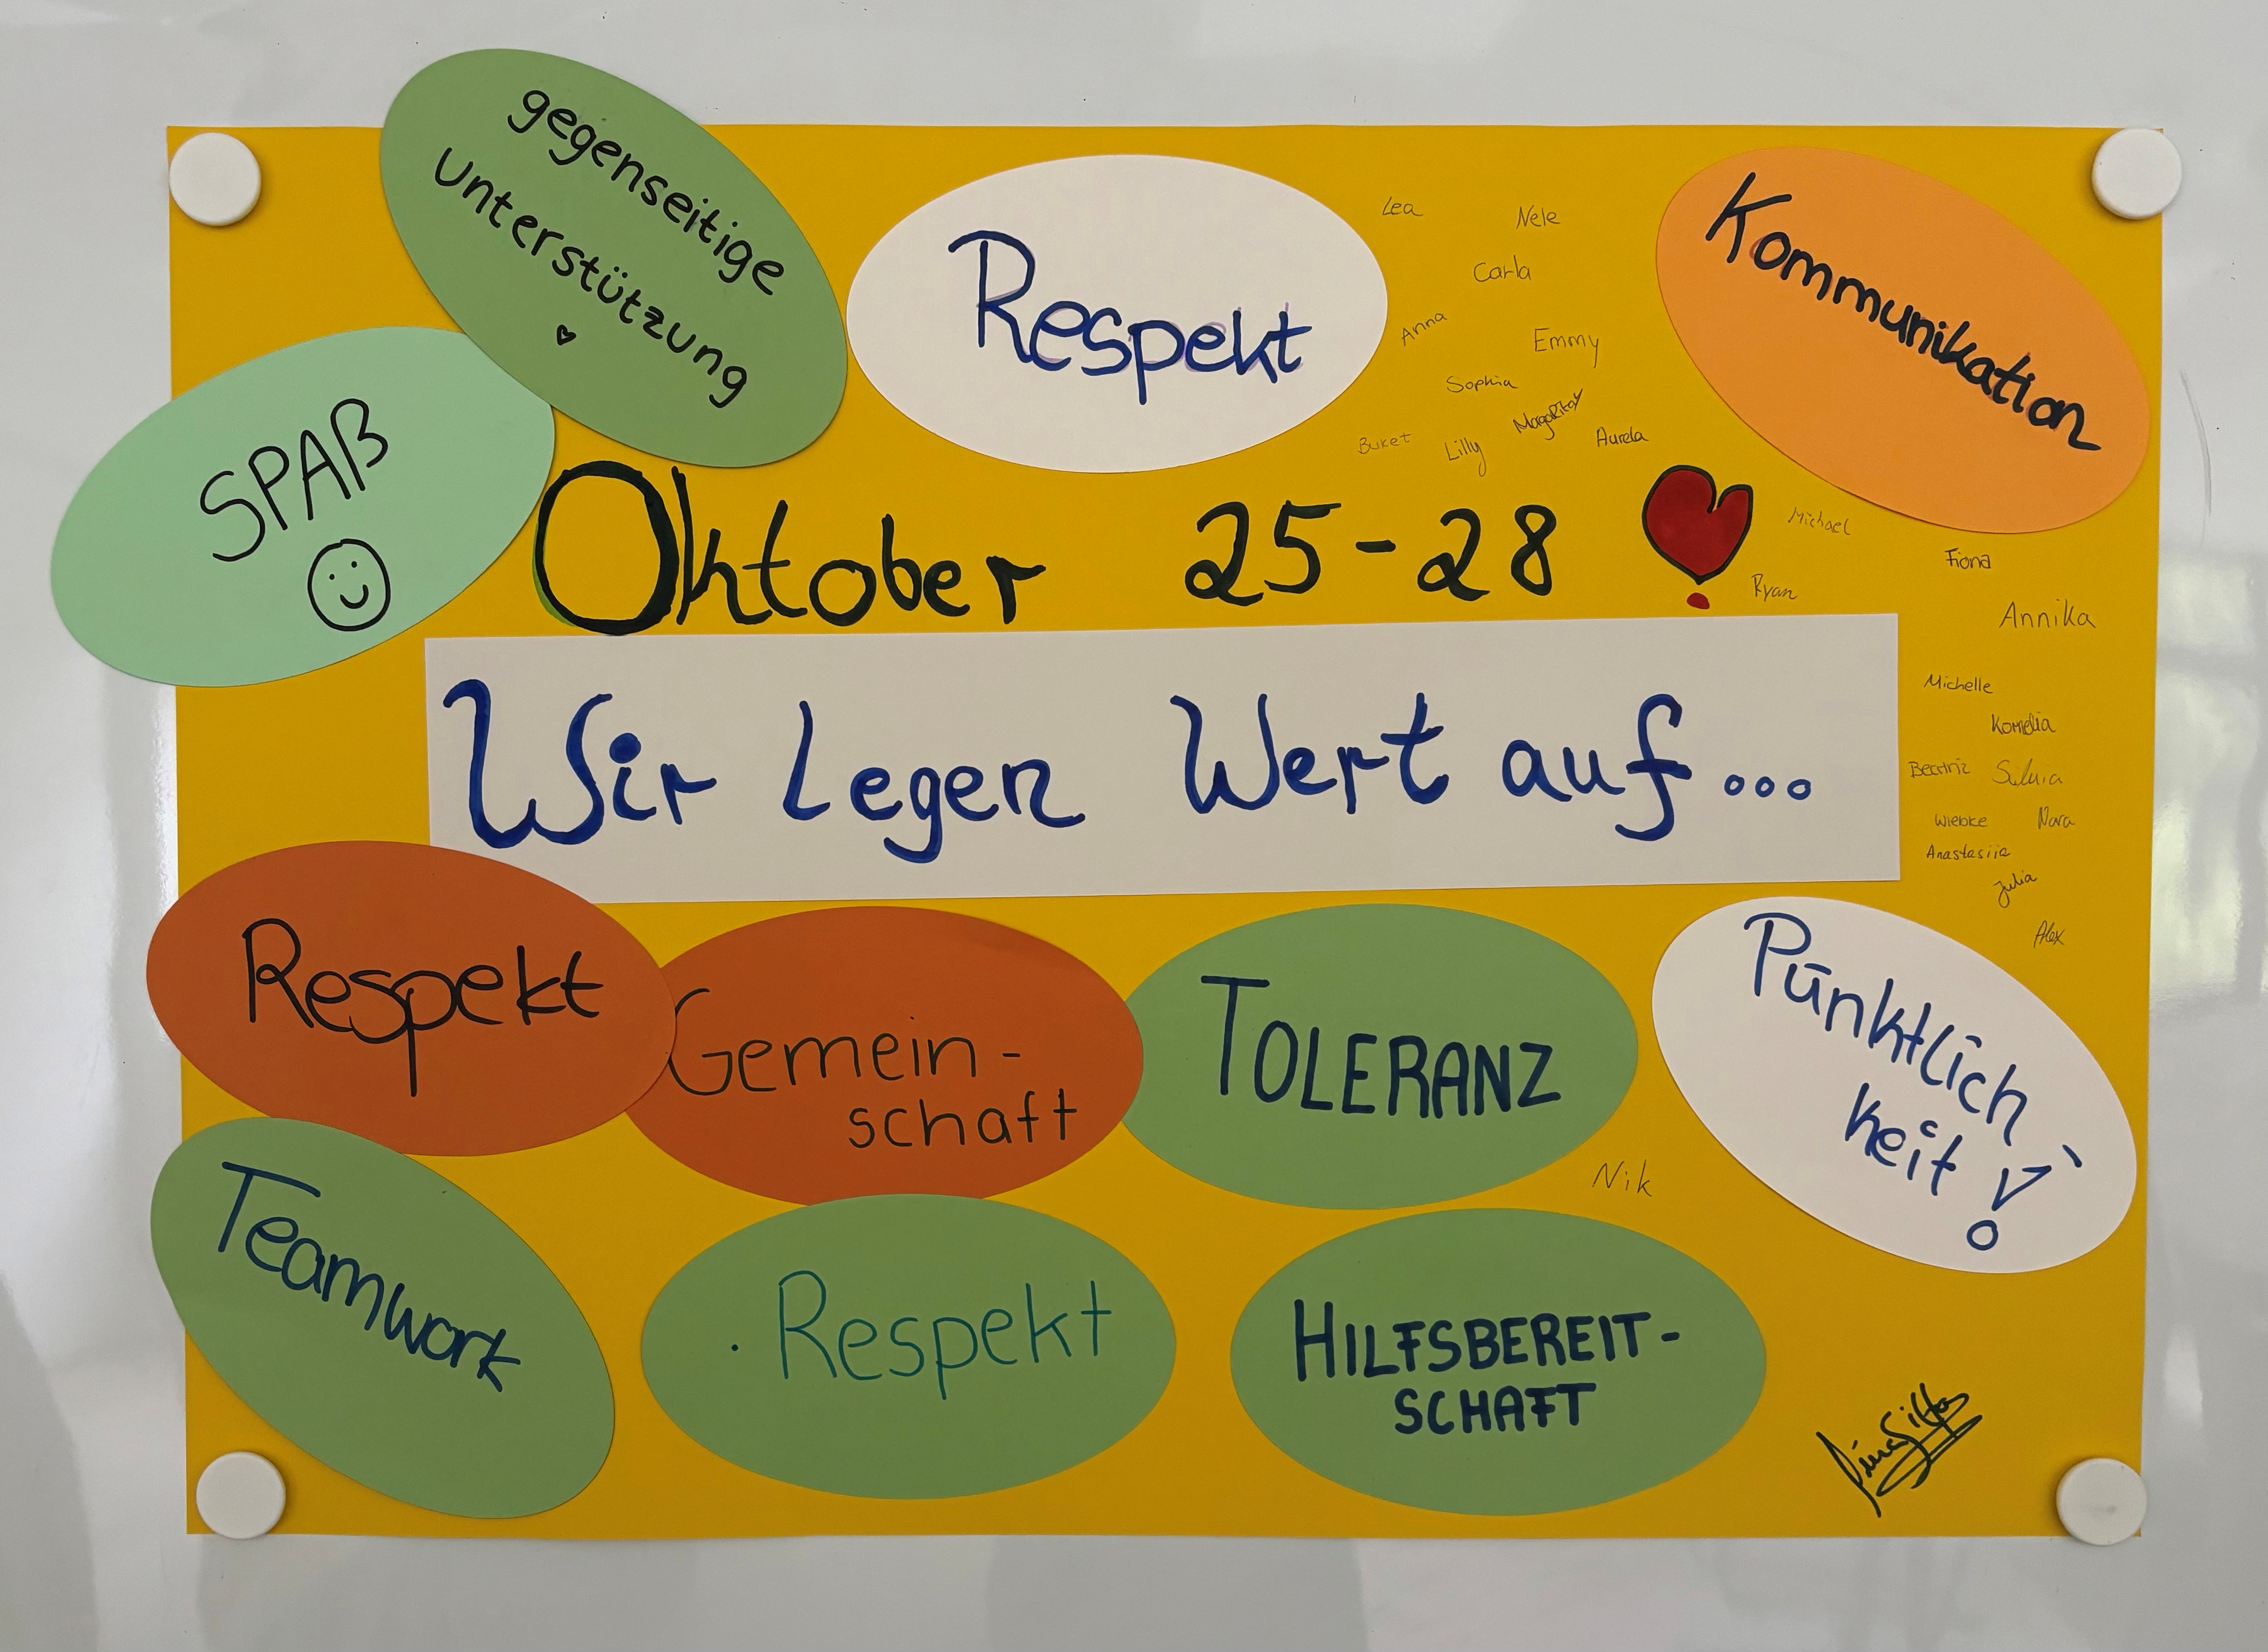 gegenseitige
Unterstützung
Respekt
Kommunikation
SPAß
Lea
Nele
Carla
Anna
Emmy
Sophia
MargaRita
Buket
Lilly
Aurela
Oktober 25-28
Michael
Fiona
Ryan
Annika
Wir Legen Wert auf...
Michelle
Kornelia
Beatriz Silvia
Wiebke Nara
Anastasiia
Julia
Alex
Respekt
Gemein-
schaft
TOLERANZ
Pünktlich
keit!
Nik
Teamwork
Respekt
HILFSBEREIT-
SCHAFT